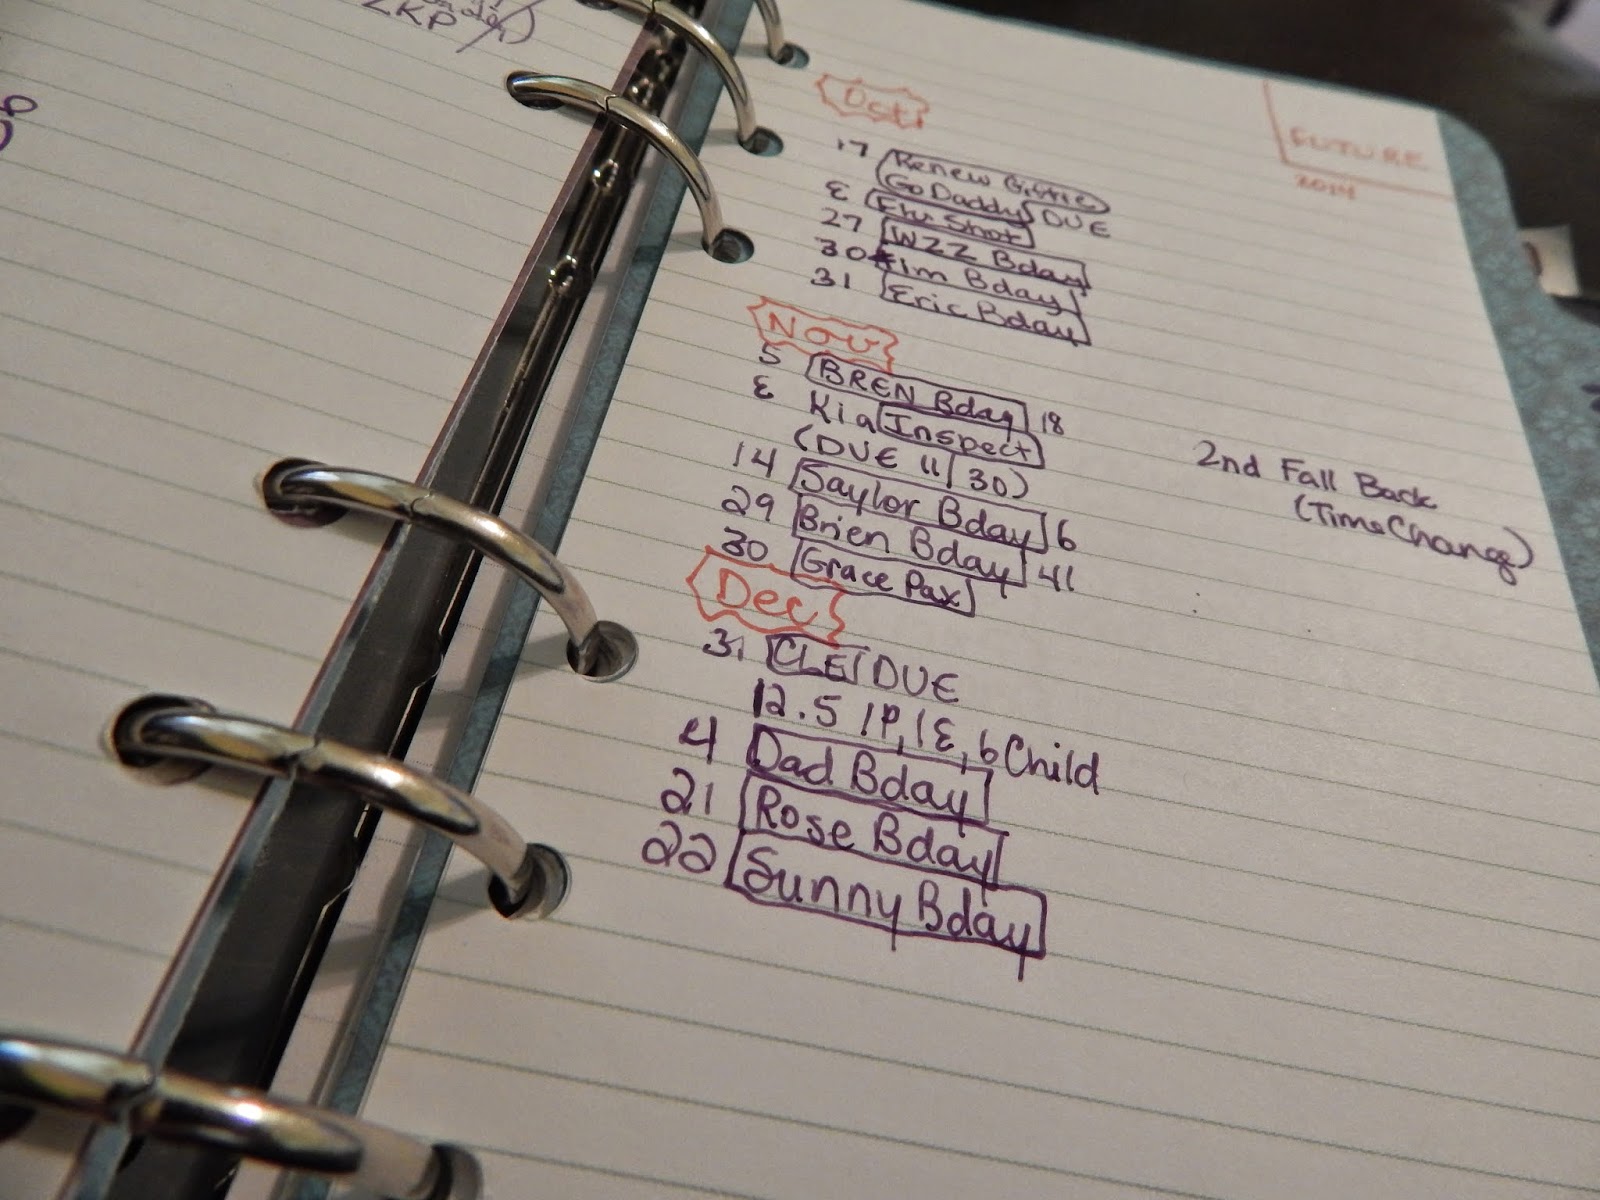 ZKP
Oct
FUTURE
2014
17 Renew
GoDaddy DUE
E Flu Shot
27 WZZ Bday
30 Bday
31 Eric Bday
Nov
5 BREN Bday 18
E Kia Inspect
(DUE 11/30)
14 Saylor Bday 6
29 Brien Bday 41
30 Grace Pax
2nd Fall Back
(Time Change)
Dec
31 CLE DUE
12.5 1P, 1E, 6 Child
4 Dad Bday
21 Rose Bday
22 Sunny Bday